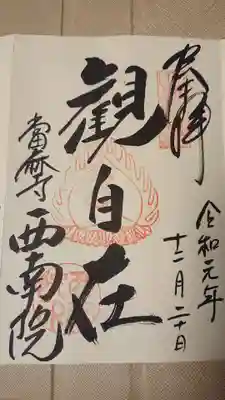 奉拝
令和元年
十二月二十日
観自在
當麻寺
西南院